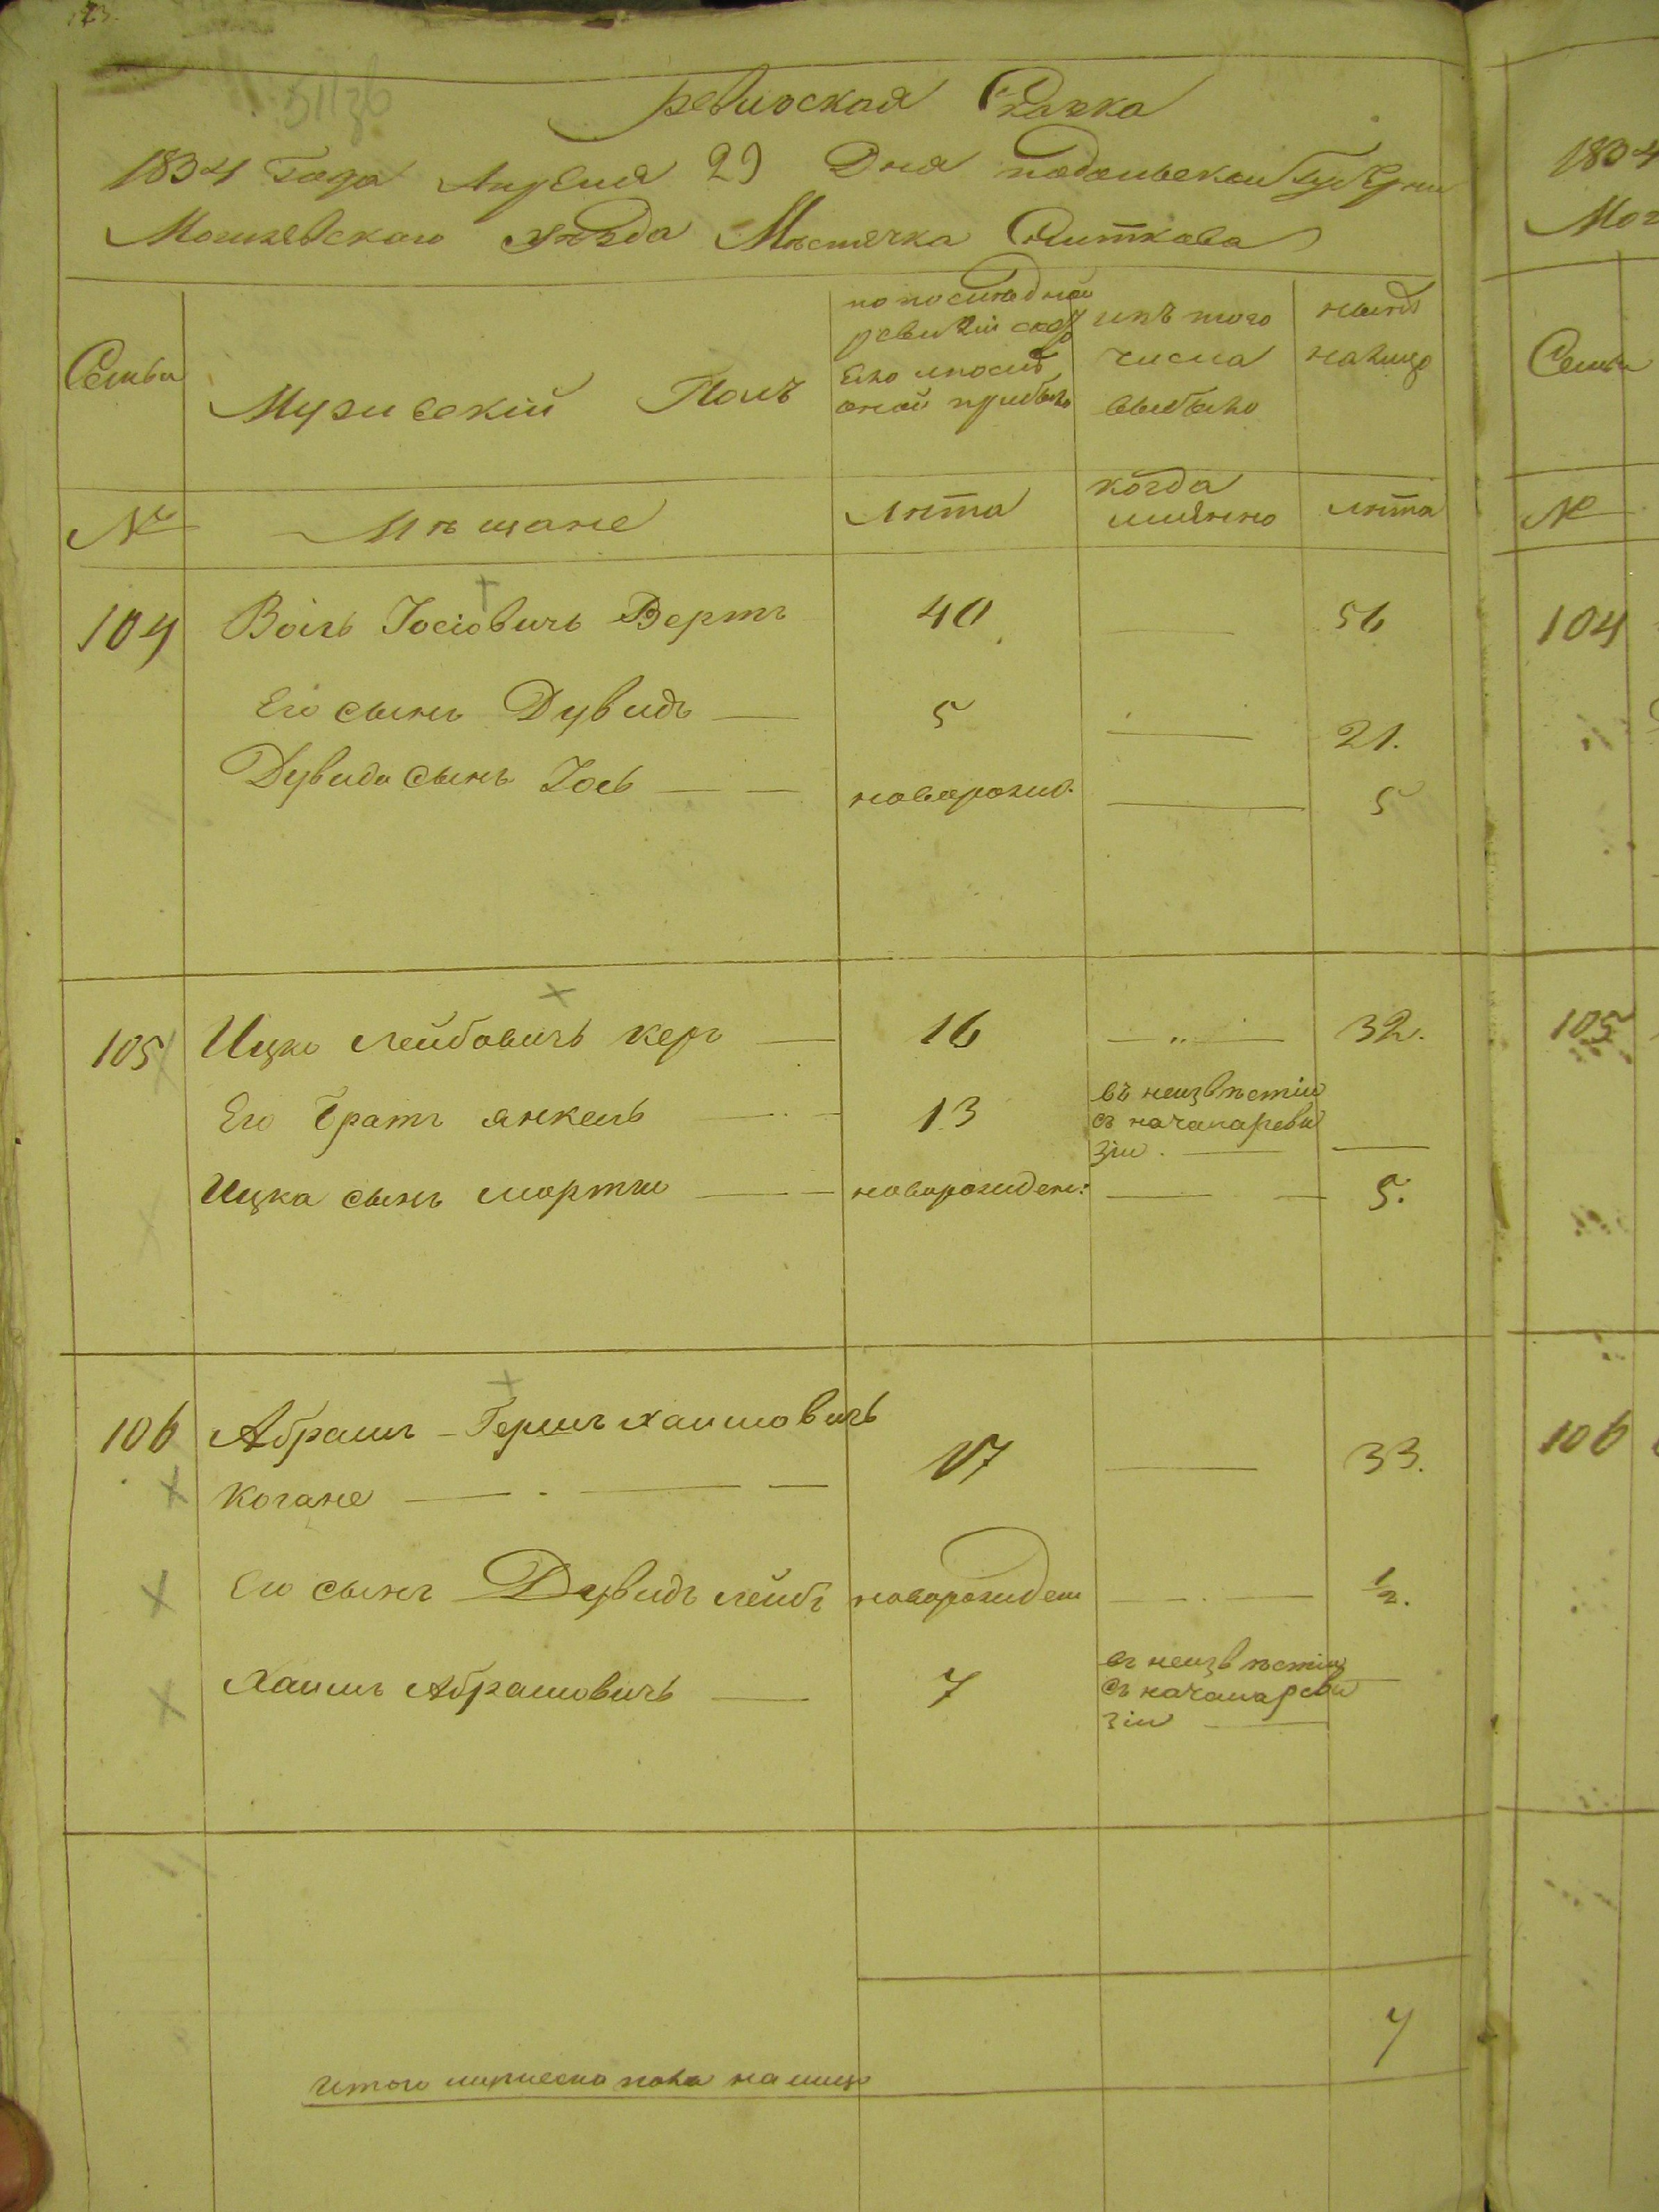 ревизская Сказка
1834 Года Апреля 29 Дня подольской Губернии
Могилевского уезда Мѣстечка Сниткова
Семьи
Мужвской Полъ
по последней
ревизіи состо
яло и после
оной прибыло
изъ того
числа
выбыло
ныне
налицо
№
Мѣщане
лѣта
когда
имянно
лѣта
104 Волъ Іосіовичъ Вертъ 40 56
Его сынъ Дувидъ 5 21.
Дувида сынъ Іось новорожд. 5
105 Ицко Лейбовичъ Керъ 16 32.
Его братъ янкель 13 въ неизвѣстіи
съ начала реви
зіи
Ицка сынъ мортко новорожден: 5.
106 Абрамъ-Гершъ хаимовичъ
Когане 17 33.
Его сынъ Дувидъ лейбъ новорожден 1/2.
Хаимъ Абрамовичъ 7 въ неизвѣстіи
съ начала реви
зіи
7
итого мужеска пола на лицо
1834
Мог
Семьи
№
104
105
106